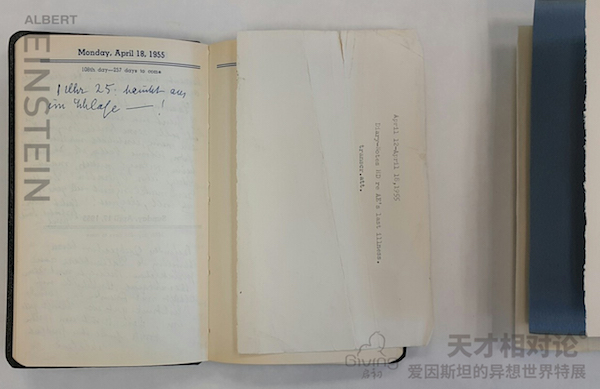 ALBERT
EINSTEIN
Monday, April 18, 1955
108th day—257 days to come
1 Uhr 25. haucht aus
im Schlafe — !
April 12-April 18, 1955
Diary-Notes HD re AE's last illness.
transcr.att.
Giving
天才相对论
爱因斯坦的异想世界特展